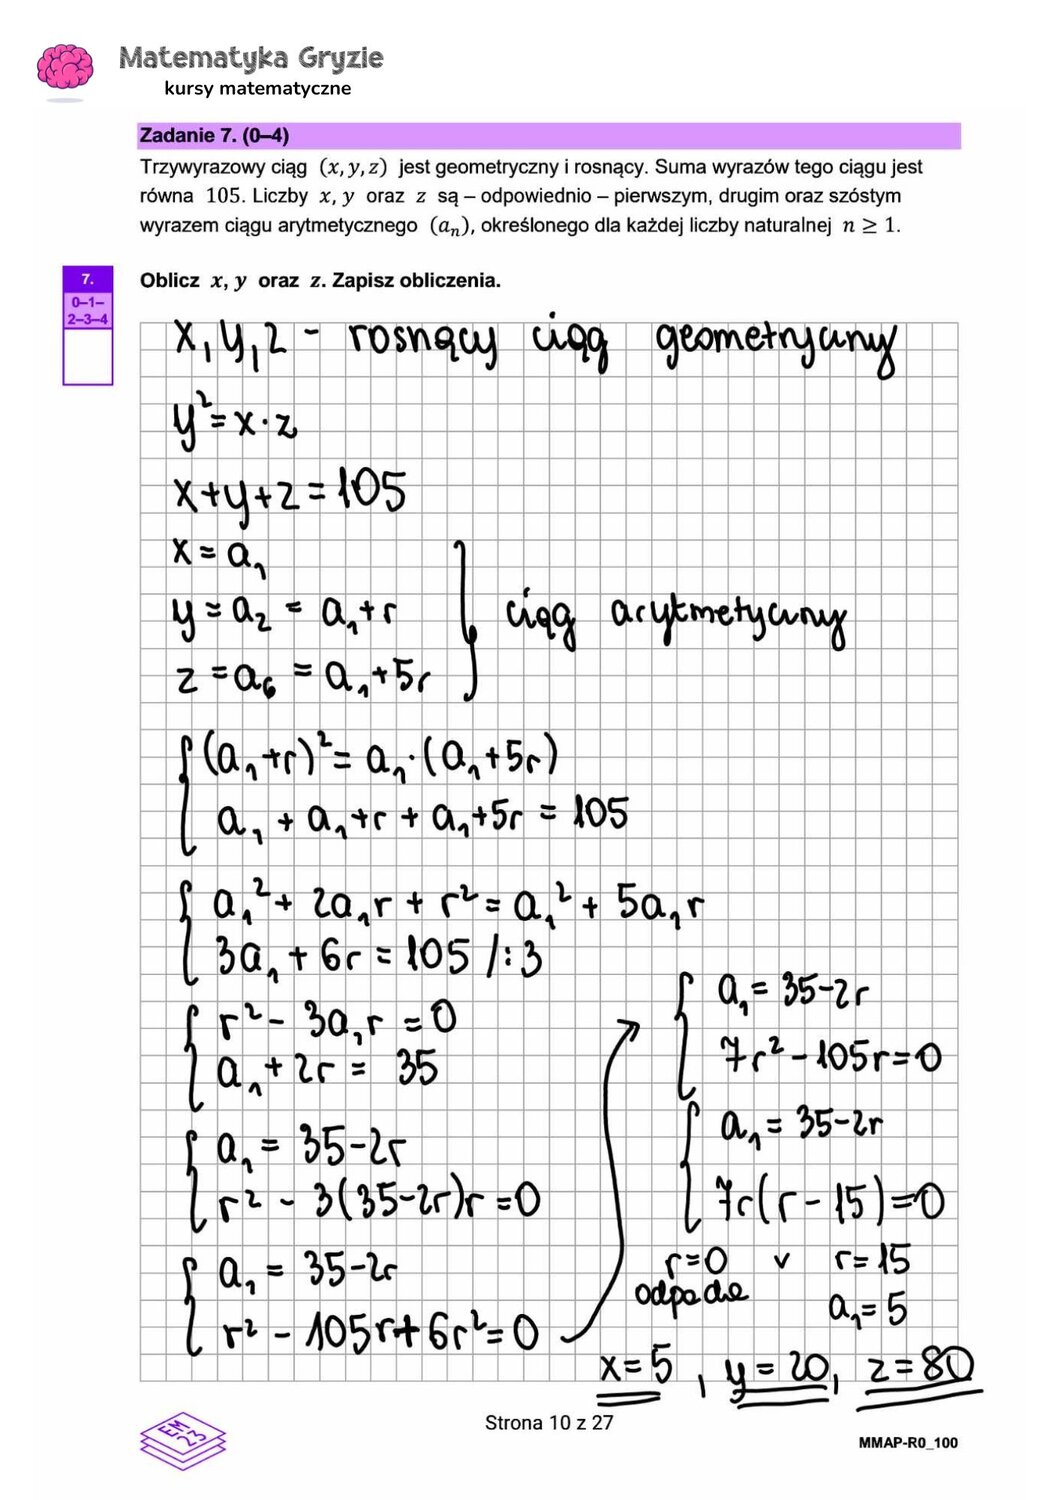 Matematyka Gryzie
kursy matematyczne
Zadanie 7. (0–4)
Trzywyrazowy ciąg (x, y, z) jest geometryczny i rosnący. Suma wyrazów tego ciągu jest
równa 105. Liczby x, y oraz z są – odpowiednio – pierwszym, drugim oraz szóstym
wyrazem ciągu arytmetycznego (aₙ), określonego dla każdej liczby naturalnej n ≥ 1.
7.
0–1–
2–3–4
Oblicz x, y oraz z. Zapisz obliczenia.
x, y, z - rosnący ciąg geometryczny
y² = x · z
x + y + z = 105
x = a₁
y = a₂ = a₁ + r
z = a₆ = a₁ + 5r
ciąg arytmetyczny
(a₁ + r)² = a₁ · (a₁ + 5r)
a₁ + a₁ + r + a₁ + 5r = 105
a₁² + 2a₁r + r² = a₁² + 5a₁r
3a₁ + 6r = 105 /: 3
r² - 3a₁r = 0
a₁ + 2r = 35
a₁ = 35 - 2r
r² - 3(35 - 2r)r = 0
a₁ = 35 - 2r
r² - 105r + 6r² = 0
a₁ = 35 - 2r
7r² - 105r = 0
a₁ = 35 - 2r
7r(r - 15) = 0
r = 0 v r = 15
odpada
a₁ = 5
x = 5, y = 20, z = 80
EM
23
Strona 10 z 27
MMAP-R0_100